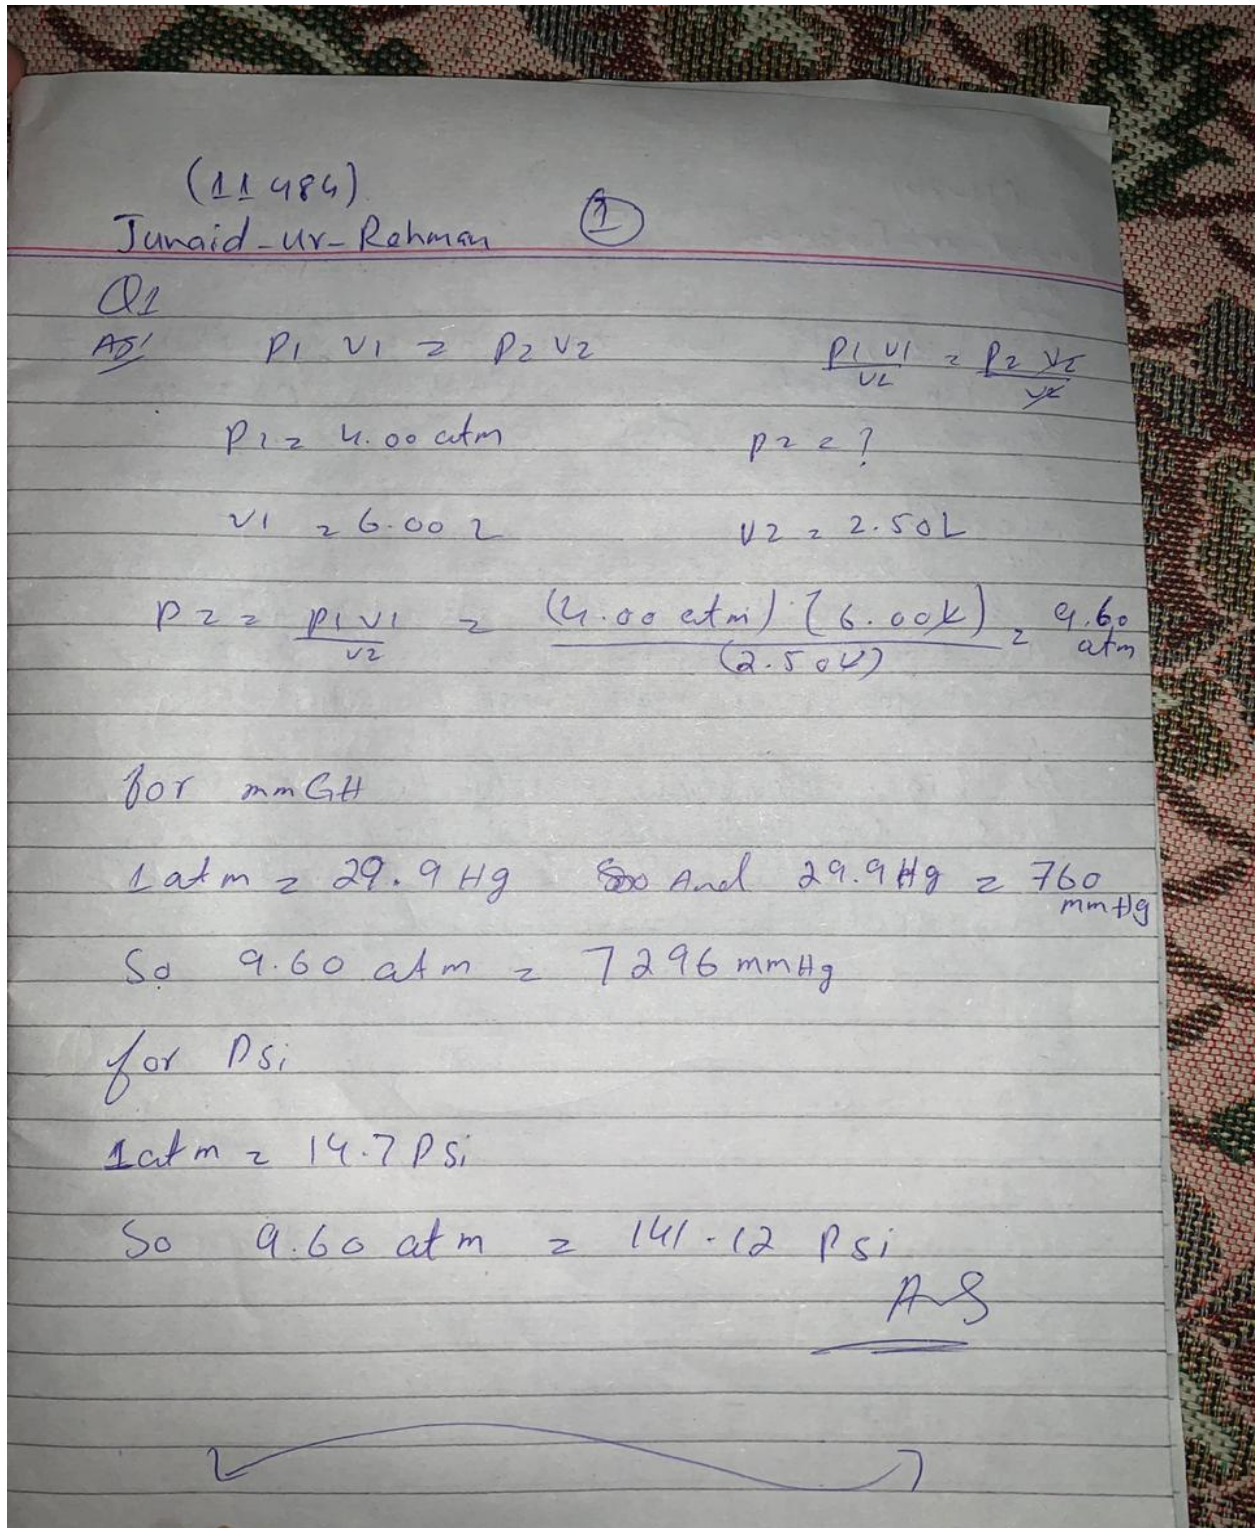 (11484)
Junaid-ur-Rehman 1
Q1
P1 V1 = P2 V2 P1 V1 / V2 = P2 V2 / V2
P1 = 4.00 atm P2 = ?
V1 = 6.00 L V2 = 2.50L
P2 = P1 V1 / V2 = (4.00 atm) (6.00L) / (2.50L) = 9.60 atm
for mmGH
1 atm = 29.9 Hg And 29.9 Hg = 760 mmHg
So 9.60 atm = 7296 mmHg
for Psi
1 atm = 14.7 Psi
So 9.60 atm = 141.12 Psi
Ans